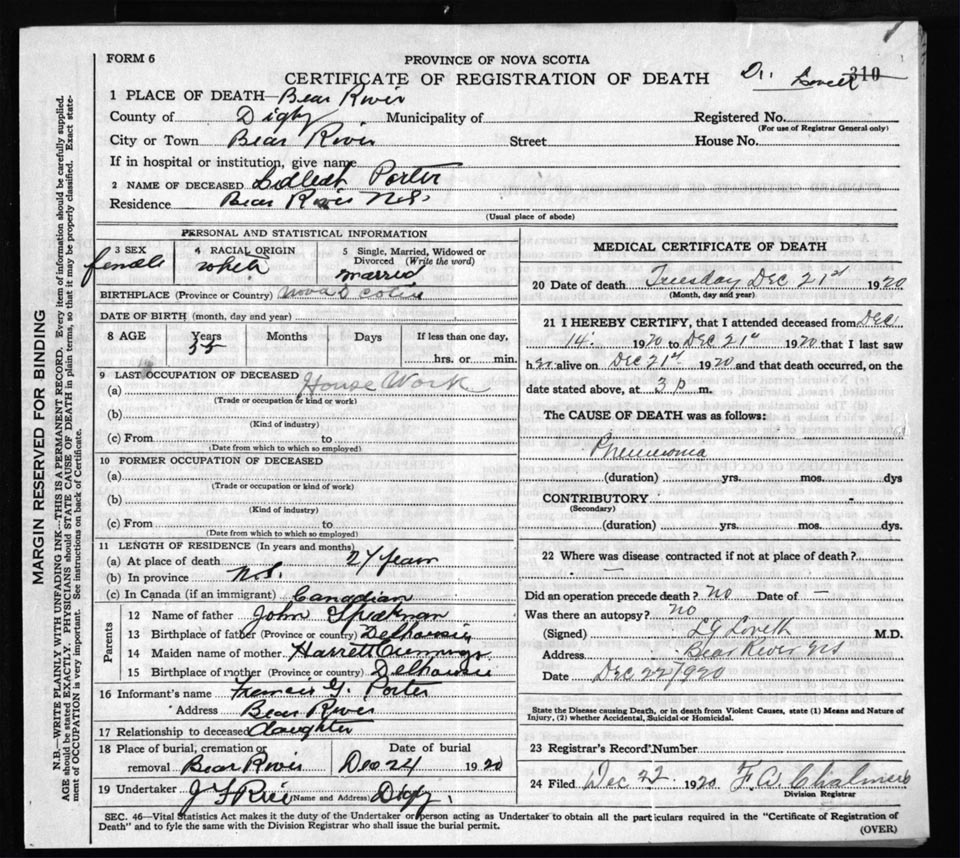 FORM 6
PROVINCE OF NOVA SCOTIA
CERTIFICATE OF REGISTRATION OF DEATH Dr. Lovett 310
1 PLACE OF DEATH—Bear River
County of Digby Municipality of Registered No.
(For use of Registrar General only)
City or Town Bear River Street House No.
If in hospital or institution, give name
2 NAME OF DECEASED Porter
Residence Bear River N.S.
(Usual place of abode)
PERSONAL AND STATISTICAL INFORMATION
3 SEX female
4 RACIAL ORIGIN White
5 Single, Married, Widowed or Divorced (Write the word) married
BIRTHPLACE (Province or Country) Nova Scotia
DATE OF BIRTH (month, day and year)
8 AGE Years 55 Months Days If less than one day,
hrs. or min.
9 LAST OCCUPATION OF DECEASED
(a) House Work
(Trade or occupation or kind or work)
(b)
(Kind of industry)
(c) From to
(Date from which to which so employed)
10 FORMER OCCUPATION OF DECEASED
(a)
(Trade or occupation or kind of work)
(b)
(Kind of industry)
(c) From to
(Date from which to which so employed)
11 LENGTH OF RESIDENCE (In years and months)
(a) At place of death 24 years
(b) In province N.S.
(c) In Canada (if an immigrant) Canadian
Parents
12 Name of father John
13 Birthplace of father (Province or country) Delhousie
14 Maiden name of mother Harrett Cummings
15 Birthplace of mother (Province or country) Delhousie
16 Informant's name Francis G. Porter
Address Bear River
17 Relationship to deceased daughter
18 Place of burial, cremation or Date of burial
removal Bear River Dec 24 1920
19 Undertaker J F Rice (Name and Address) Digby.
MEDICAL CERTIFICATE OF DEATH
20 Date of death Tuesday Dec 21st 1920
(Month, day and year)
21 I HEREBY CERTIFY, that I attended deceased from Dec
14. 1920 to Dec 21st 1920 that I last saw
her alive on Dec 21st 1920 and that death occurred, on the
date stated above, at 3 p m.
The CAUSE OF DEATH was as follows:
Pneumonia
(duration) yrs. mos. dys
CONTRIBUTORY
(Secondary)
(duration) yrs. mos. dys.
22 Where was disease contracted if not at place of death?
—
Did an operation precede death? no Date of —
Was there an autopsy? no
(Signed) LG Lovett M.D.
Address Bear River NS
Date Dec 22/1920
State the Disease causing Death, or in death from Violent Causes, state (1) Means and Nature of
Injury, (2) whether Accidental, Suicidal or Homicidal.
23 Registrar's Record Number
24 Filed Dec 22 1920 F.W. Chalmers
Division Registrar
SEC. 46—Vital Statistics Act makes it the duty of the Undertaker or person acting as Undertaker to obtain all the particulars required in the "Certificate of Registration of
Death" and to fyle the same with the Division Registrar who shall issue the burial permit. (OVER)
MARGIN RESERVED FOR BINDING
N.B.—WRITE PLAINLY WITH UNFADING INK—THIS IS A PERMANENT RECORD. Every item of information should be carefully supplied.
AGE should be stated EXACTLY. PHYSICIANS should STATE CAUSE OF DEATH in plain terms, so that it may be properly classified. Exact state-
ment of OCCUPATION is very important. See instructions on back of Certificate.